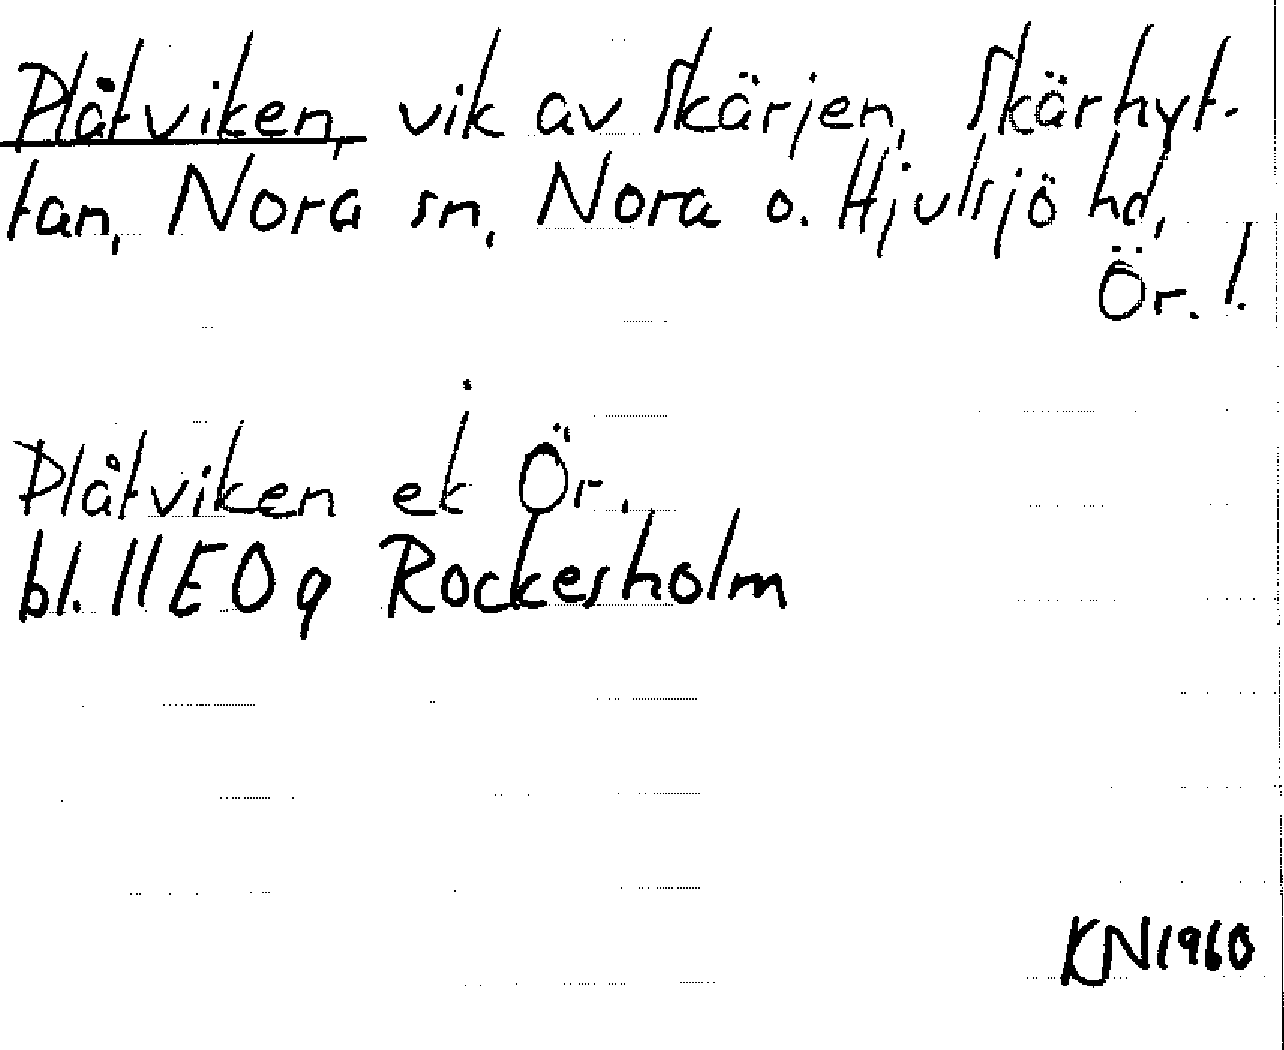 Plåtviken, vik av Skärjen, Skärhyt-
tan, Nora sn, Nora o. Hjulsjö hd,
Ör. l.
Plåtviken ek Ör.
bl. 11E0g Rockesholm
KN1960